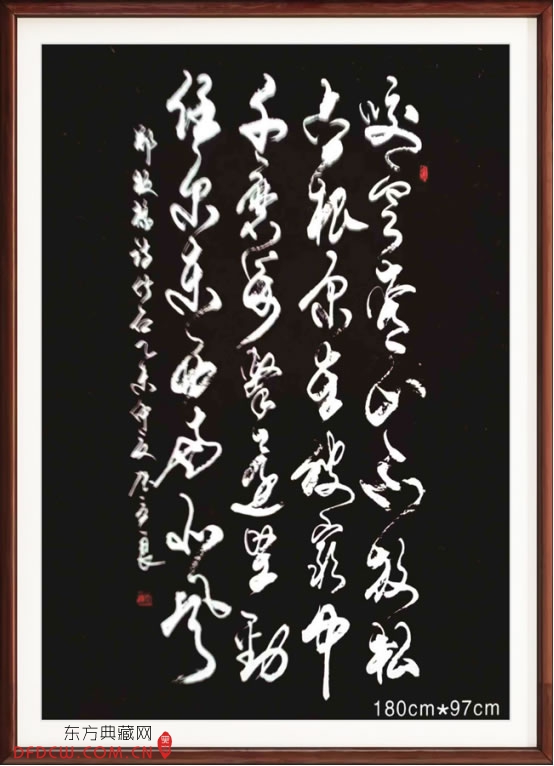 咬定青山不放松
立根原在破岩中
千磨萬擊還堅勁
任尔東西南北風
鄭板橋詩竹石乙未仲夏
180cm*97cm
东方典藏网
DFDCW.COM.CN